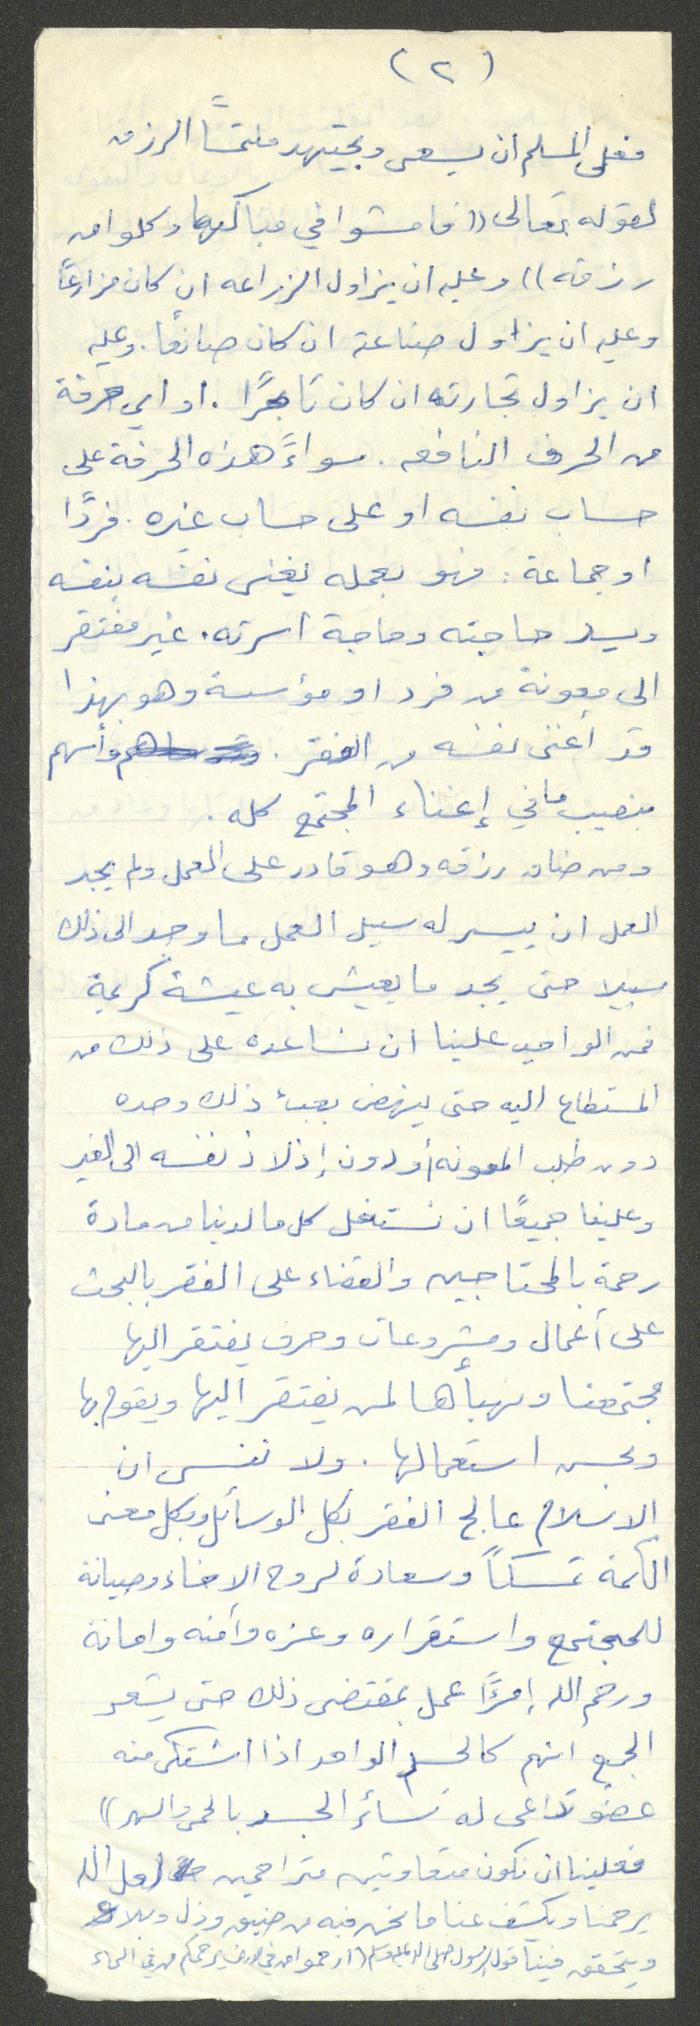 (٢)
فعلى المسلم ان يسعى ويجتهد ملتمسًا الرزق
لقوله تعالى ((فامشوا في مناكبها وكلوا من
رزقه)) وعليه ان يزاول الزراعه ان كان مزارعًا
وعليه ان يزاول صناعته ان كان صانعًا. وعليه
ان يزاول تجارته ان كان تاجرًا. او اي حرفة
من الحرف النافعه. سواءً هذه الحرفة على
حساب نفسه او على حساب غيره. فردًا
او جماعة: فهو بعمله يغني نفسه بنفسه
ويسد حاجته وحاجة أسرته. غير مفتقر
الى معونة من فرد او مؤسسة وهو بهذا
قد أغنى نفسه من الفقر. وأسهم
بنصيب ما في إغناء المجتمع كله.
ومن ضاق رزقه وهو قادر على العمل ولم يجد
العمل ان ييسر له سبل العمل ما وجد الى ذلك
سبيلا حتى يجد ما يعيش به عيشة كريمة
فمن الواجب علينا ان نساعده على ذلك من
المستطاع اليه حتى ينهض بعبء ذلك وحده
دون طلب المعونه أو دون إذلال نفسه الى الغير
وعلينا جميعًا ان نستغل كل ما لدينا من مادة
رحمة بالمحتاجين والقضاء على الفقر بالبحث
على أعمال ومشروعات وحرف يفتقر اليها
مجتمعنا ونهيأها لمن يفتقر اليها ويقوم بها
ويحسن استعمالها. ولا ننسى ان
الاسلام عالج الفقر بكل الوسائل وبكل معنى
الكلمة تمسكًا وسعادة لروح الاخاء وصيانة
للمجتمع واستقراره وعزه وأمنه وامانة
ورحم الله إمرءًا عمل بمقتضى ذلك حتى يشعر
الجميع انهم كالجسم الواحد اذا اشتكى منه
عضو تداعى له سائر الجسد بالحمى والسهر))
فعلينا ان نكون متعاونين متراحمين لعل الله
يرحمنا ويكشف عنا ما نحن فيه من ضيق وذل وبلاء
ويتحقق فينا قول الرسول صلى الله عليه وسلم ((ارحموا من في الارض يرحمكم من في السماء